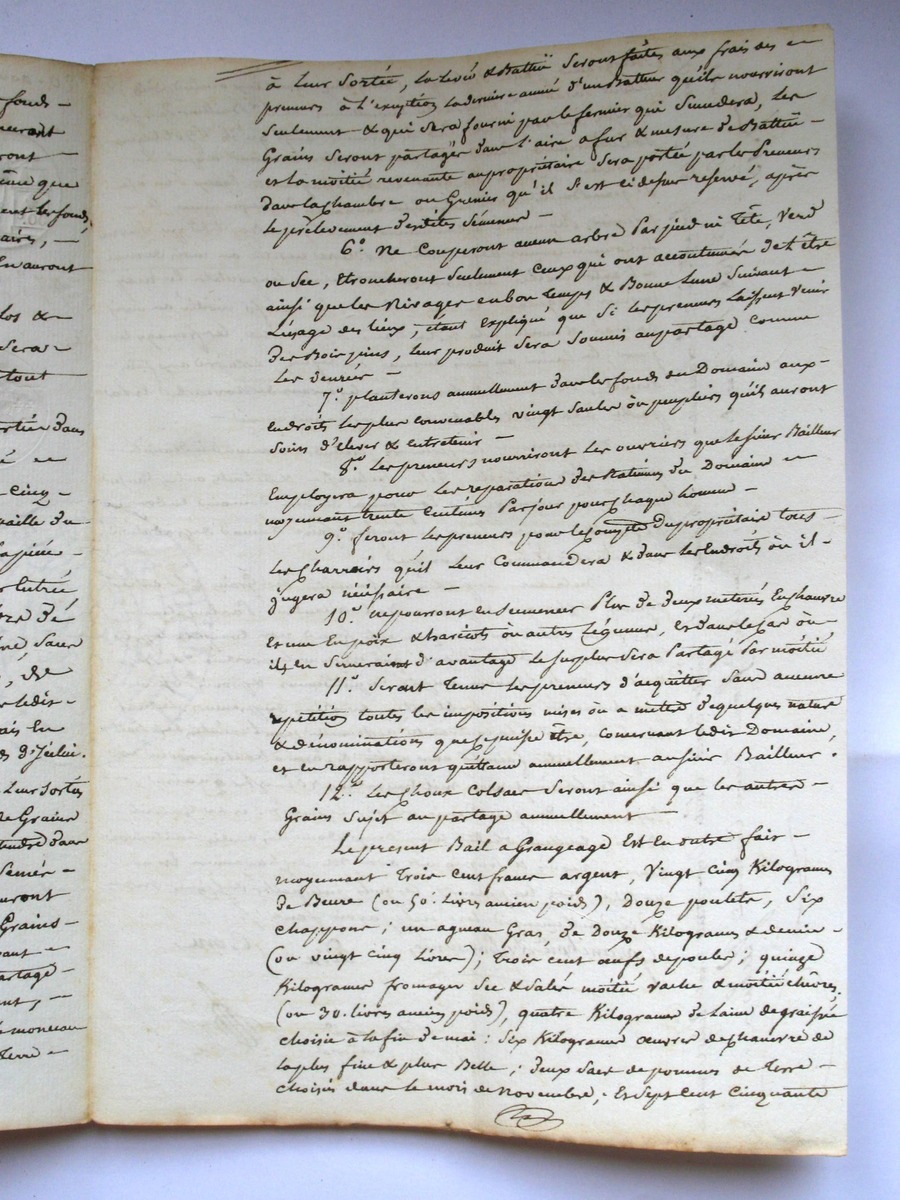 fonds -
ront -
même que
ent les fonds,
aires, -
En auront
los & -
Sera -
tout
sortie dans
é -
cinq -
vaille du -
la piece -
Entrée
De
Sacs
, &
ledit -
mais En
Leur Sortie
De Grains
Semés -
uront
Grains -
vant -
artagé -
ent, -
le monceau
Terre -
à Leur Sortie, La levée & Battue Seront faites aux frais des -
preneurs à l'exeption La derniere année d'un Batteur qu'ils nourriront
Seulement & qui Sera fourni par le fermier qui Succedera, Les
Grains Seront partagés dans l'aire a fur & mesure De Battue -
et La moitié revenante au propriétaire Sera portée par les Preneurs
dans La Chambre ou Grenier qu'il S'est ci dessus reservé, après
Le prélevement Desdites Sémences -
6.° Ne Couperont aucun arbre Par pied ni Tête, Verd
ou Sec, Etroncheront Seulement Ceux qui ont accoutumée De L'être
ainsi que les Rivages en bon Temps & Bonne Lune Suivant -
L'usage des Lieux, étant expliqué que Si les preneurs Laissent Venir
Des Bois pins, Leur produit Sera Soumis au partage Comme
Les Denrées -
7.° planterons annuellement Dans les fonds du Domaine aux -
Endroits Les plus Convenables vingt Saules ou peupliers qu'ils auront
Soins D'élever & Entretenir -
8.° Les preneurs nourriront Les ouvriers que le sieur Bailleur
Employera pour Les reparations Des Batimens Du Domaine -
moyennant trente Centimes Par jour pour Chaque homme -
9.° feront Les preneurs pour le Compte Du propriétaire tous -
Les Charrois qu'il Leur Commandera & dans Les Endroits ou il -
Jugera nécéssaire -
10.° ne pourront en Semencer Plus De Deux meterés En chanvre
et une En poix & haricots ou autres Légumes, et Dans le Cas où -
ils en Semeraient D'avantage Le Surplus Sera Partagé Par moitié
11.° Seront Tenus Les preneurs D'acquitter Sans aucune
repétition toutes Les impositions mises ou a mettre De quelques nature
& Dénominations que ce puisse être, Concernant Ledit Domaine,
et en rapporteront quittance annuellement au sieur Bailleur.
12.° Les Choux Colsacs Seront ainsi que Les autres -
Grains Sujet au partage annuellement -
Le present Bail a Grangeage Est En outre fait -
moyennant Trois Cent francs argent, Vingt Cinq Kilogrames
De Beure (ou 50. Livres ancien poids), Douze poulets, Six
Chappons; un agneau Gras De Douze Kilogrames & demie -
(ou vingt Cinq Livres); Trois Cent œufs De poules; quinze
Kilogrames fromages Sec & Salés moitié vache & moitié chêvres,
(ou 30. Livres anciens poids), quatre Kilogrames De Laine De graissée
choisie à La fin De mai: Six Kilogrames œuvres De chanvre de
La plus fine & plus Belle; Deux Sacs de pommes de Terre -
choisies dans le mois de novembre; Et Sept Cent Cinquante